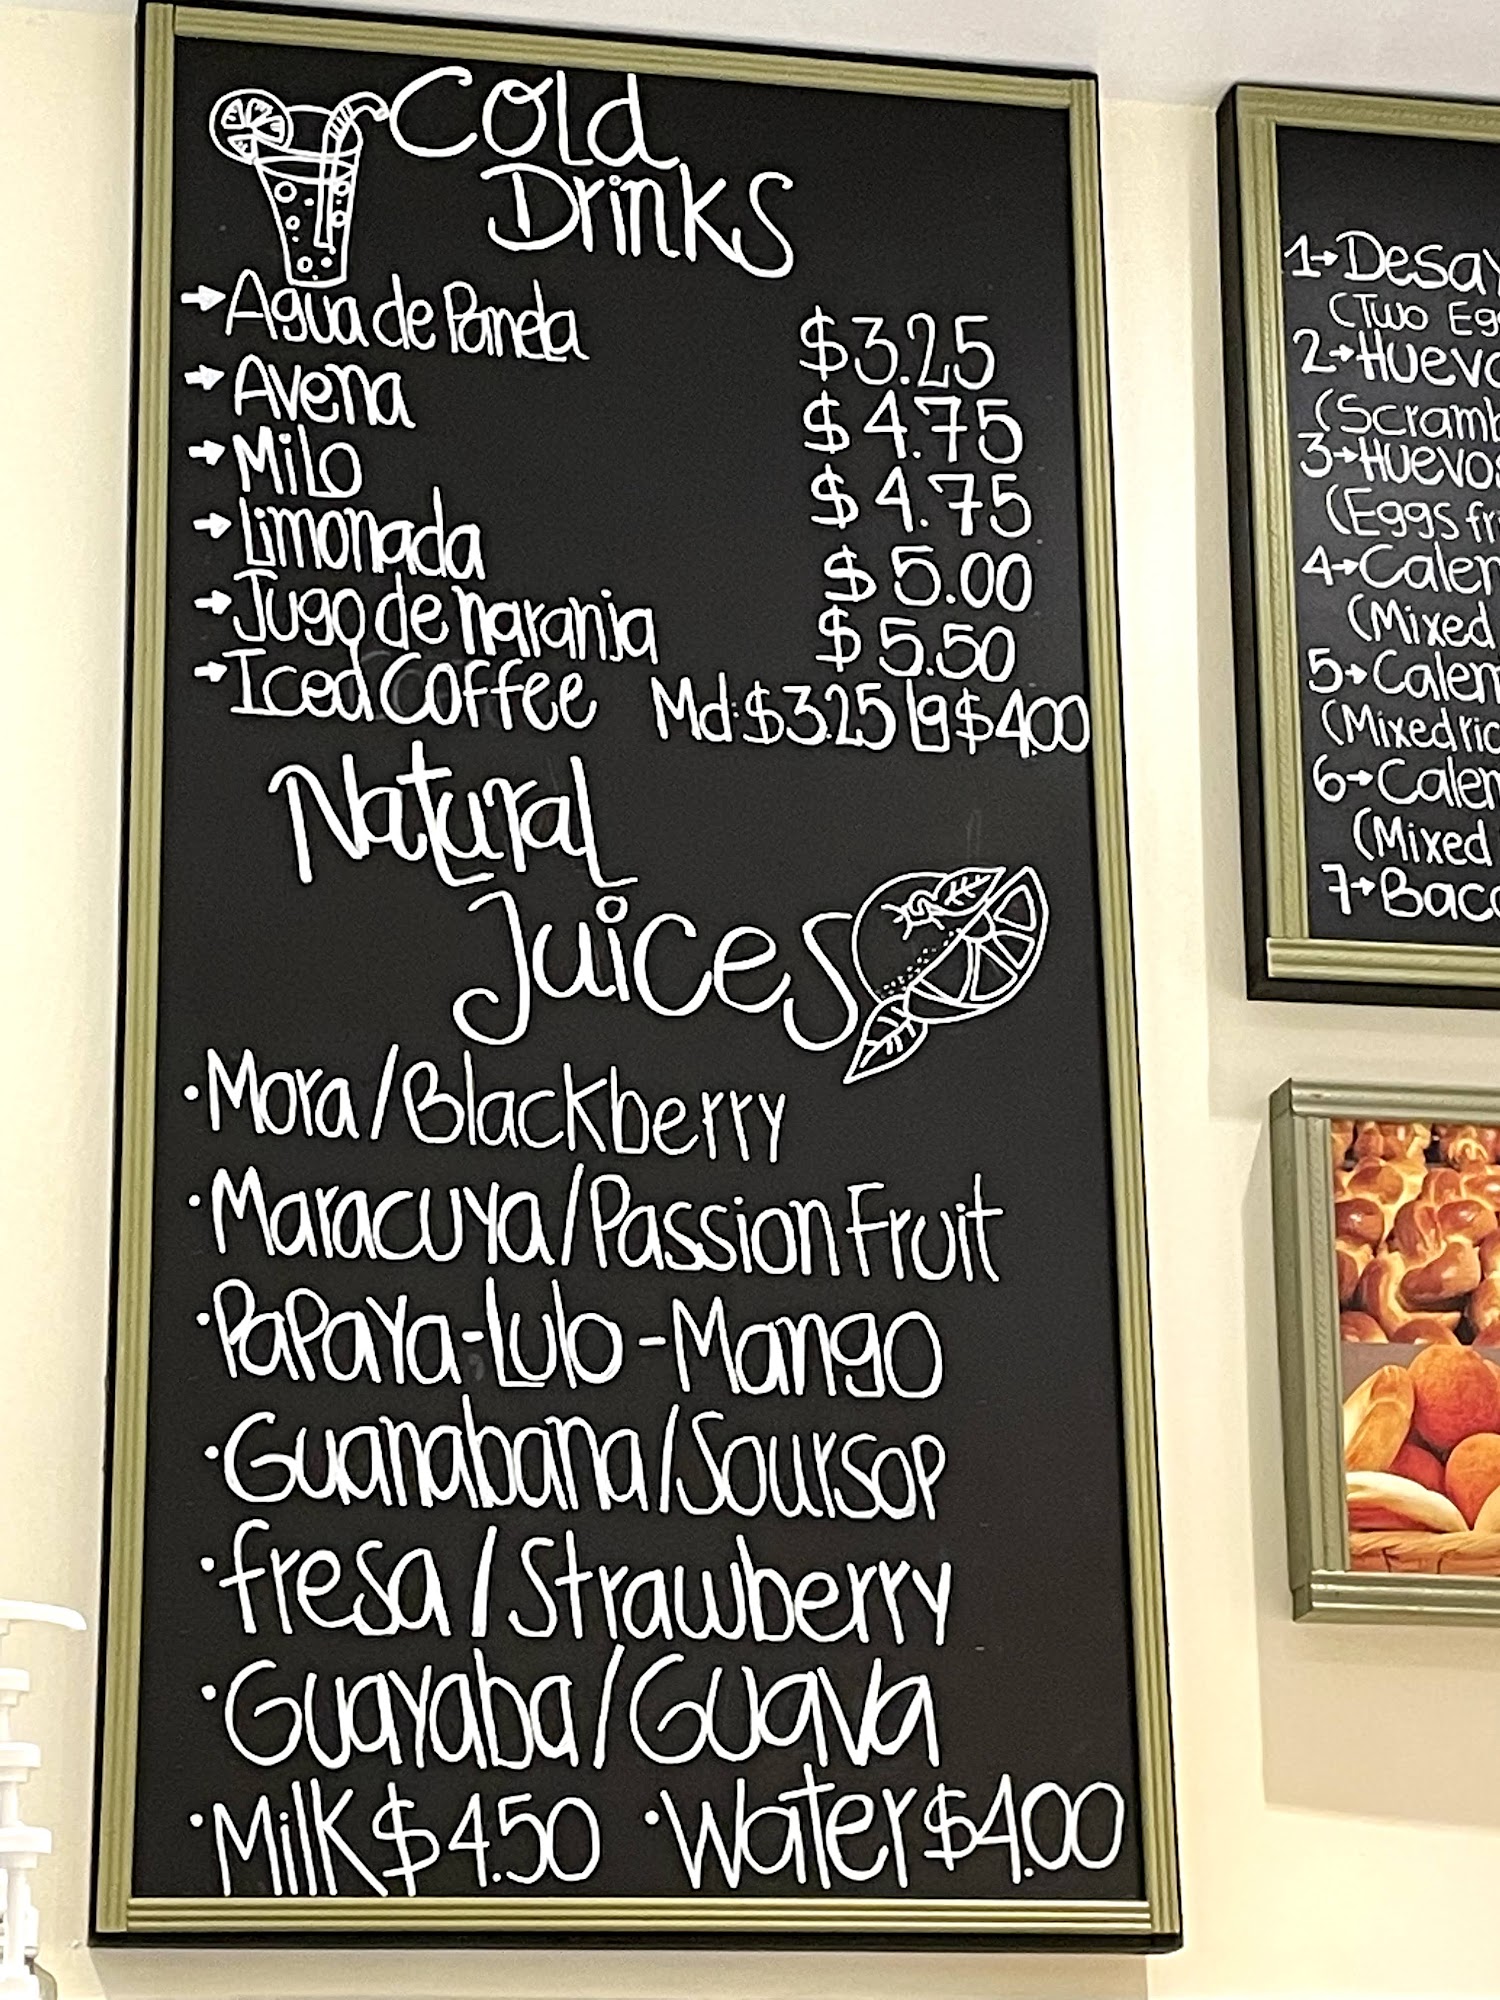 Cold
Drinks
→Agua de Panela $3.25
→Avena $4.75
→Milo $4.75
→Limonada $5.00
→Jugo de naranja $5.50
→Iced Coffee Md:$3.25 lg $4.00
Natural
Juices
·Mora/Blackberry
·Maracuya/Passion Fruit
·Papaya-Lulo-Mango
·Guanabana/Soursop
·Fresa/Strawberry
·Guayaba/Guava
·Milk $4.50 ·Water $4.00
1→Desay
(Two Eg
2→Huevo
(Scramb
3→Huevos
(Eggs fri
4→Calen
(Mixed
5→Calen
(Mixed ric
6→Calen
(Mixed
7→Baco